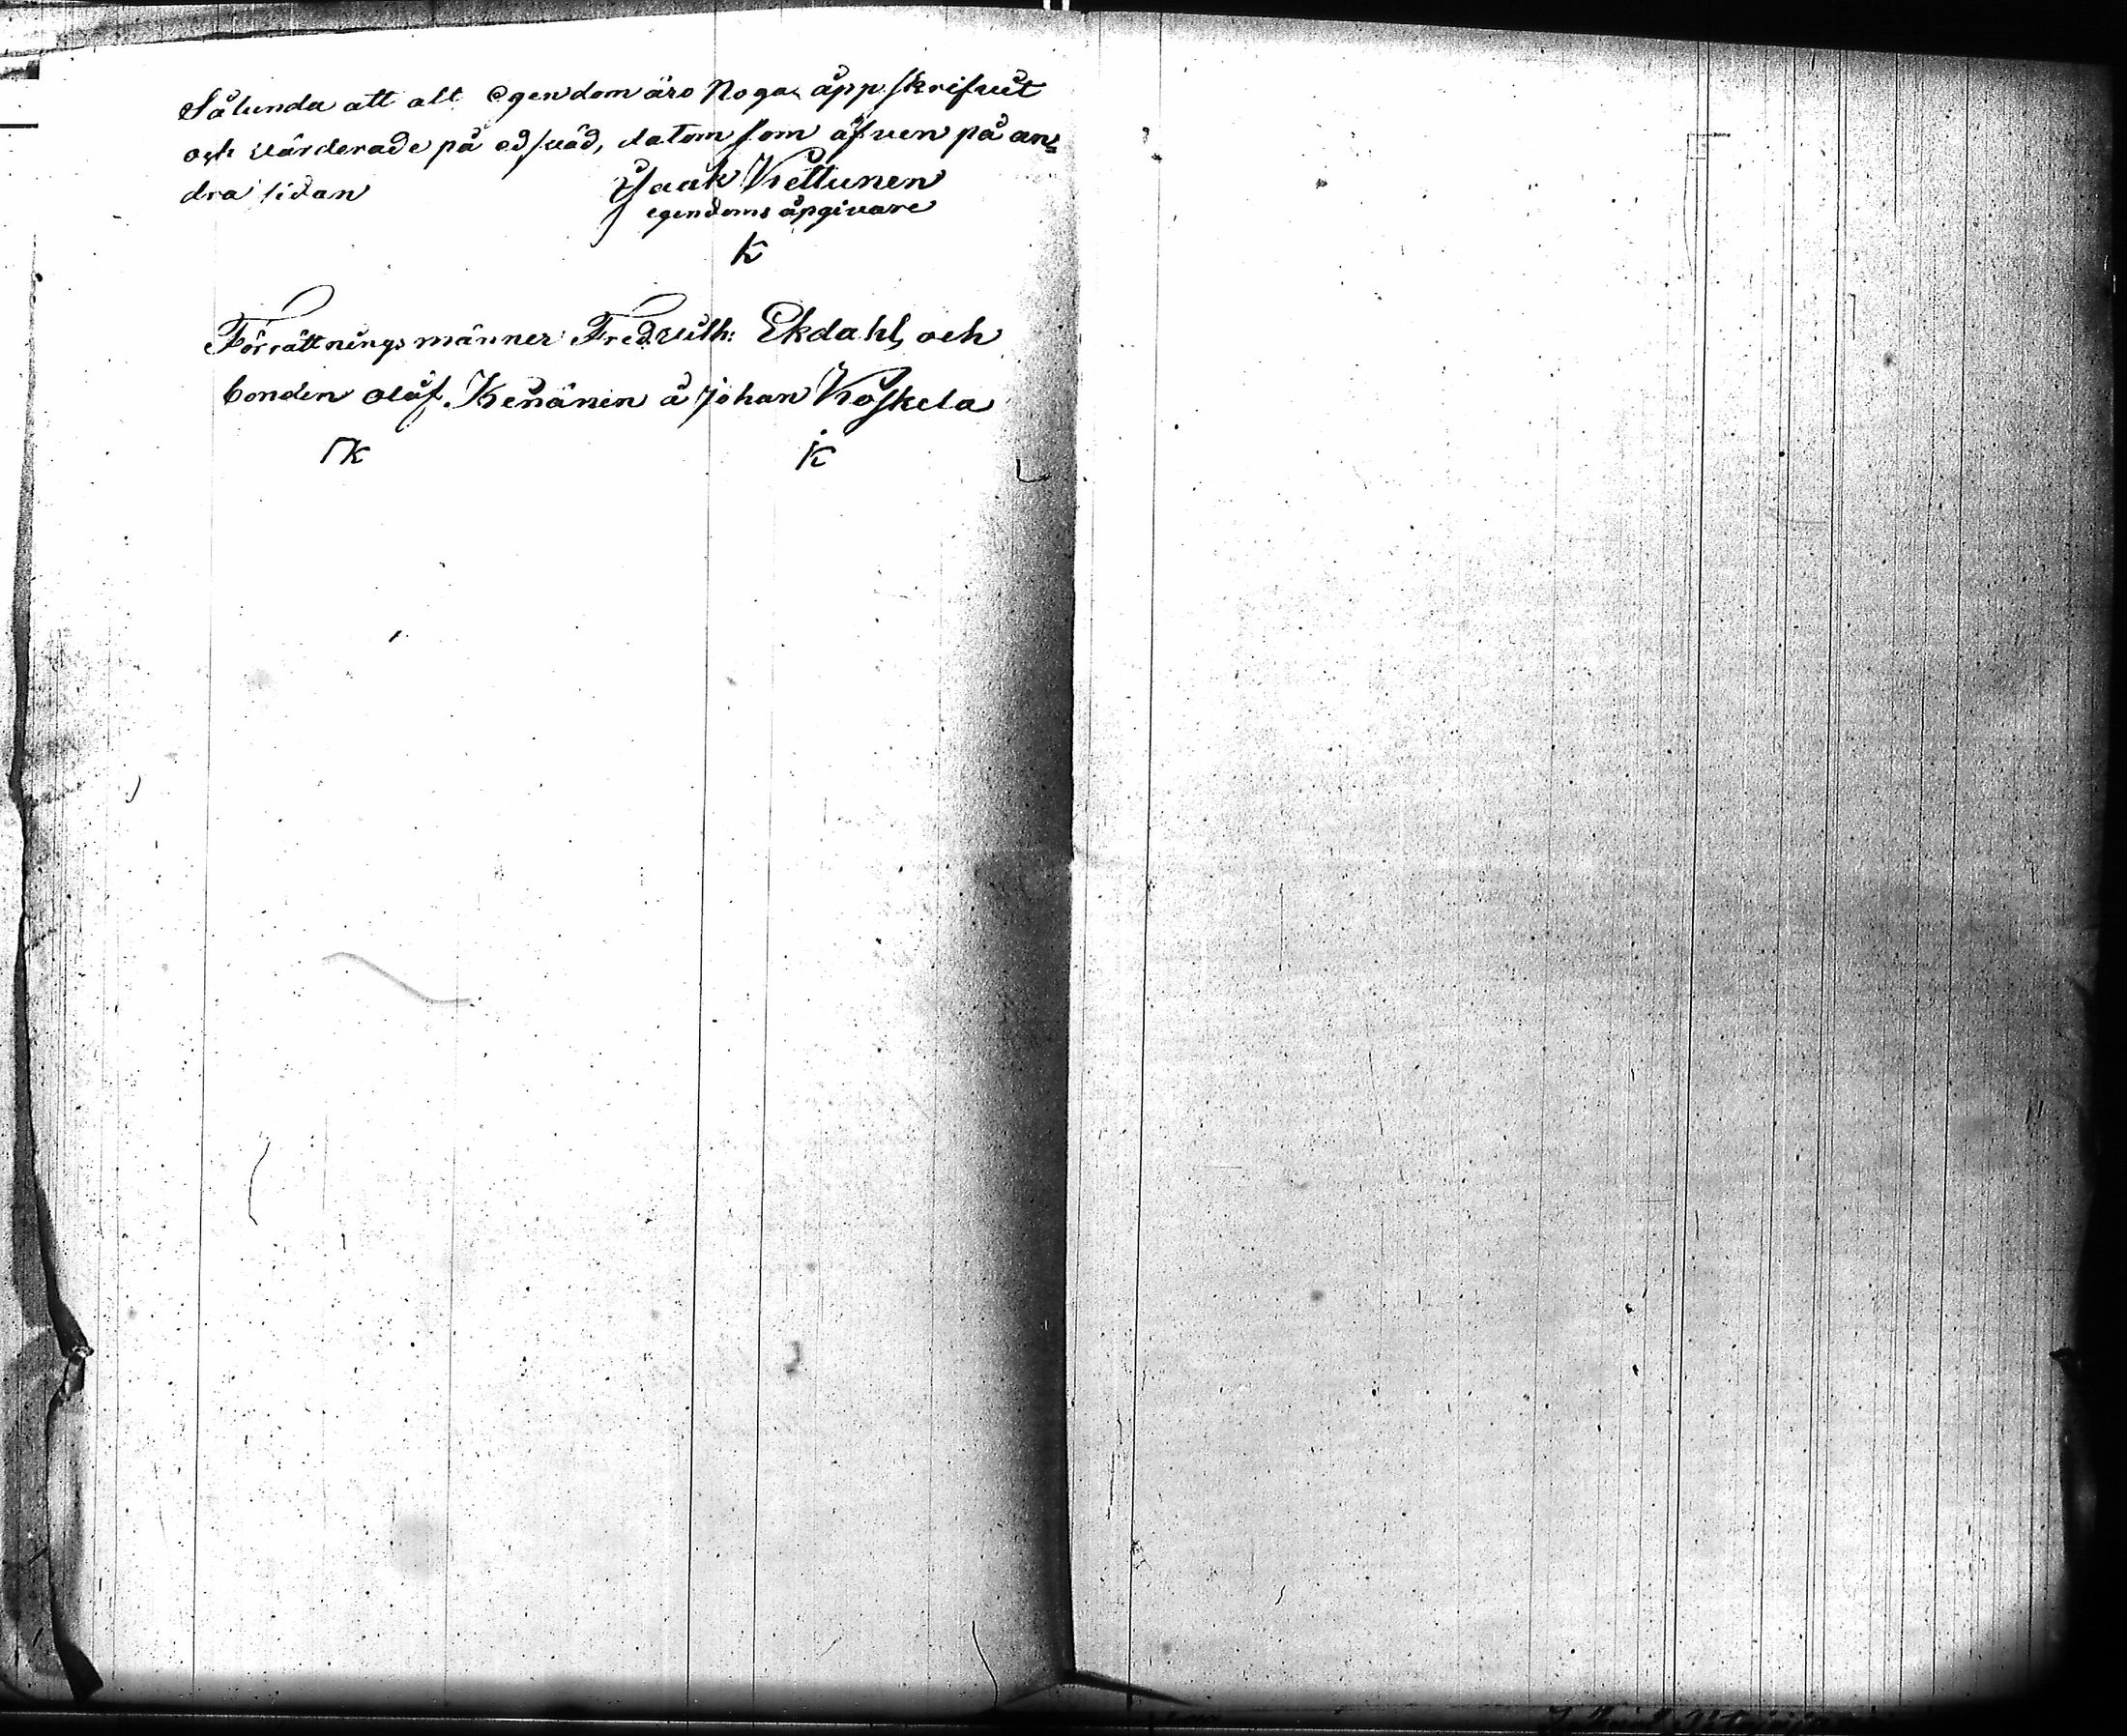 Sålunda att alt egendom äro Noga åpp skrifvit
och värderade på ed svåd, datom som äfven på an=
dra sidan
Isaak Kettunen
egendoms åpgivare
K
Förrättnings männer Fred Vilh: Ekdahl, och
bonden olåf. Kenänen å Johan Kåskela
K
K